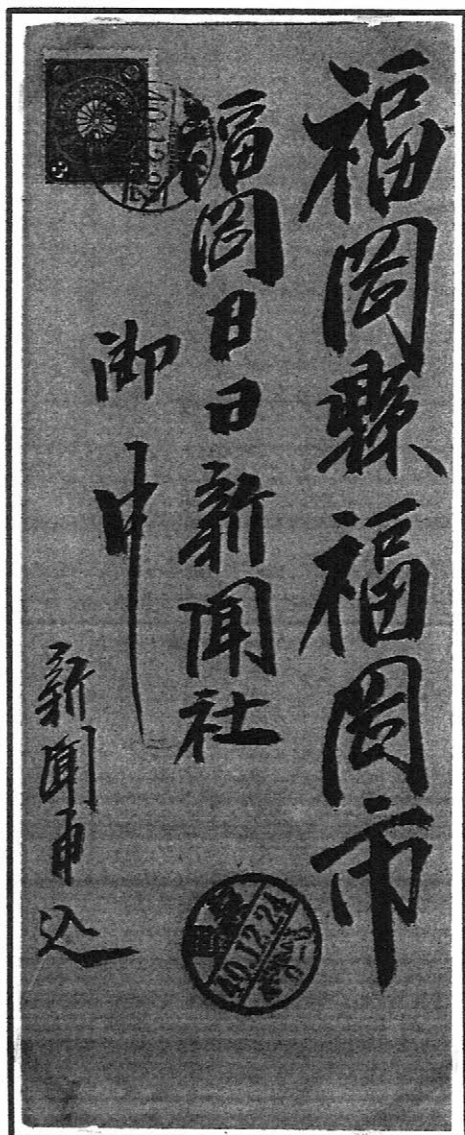 福岡縣福岡市
福岡日日新聞社
御中
新聞申込
40.12.24